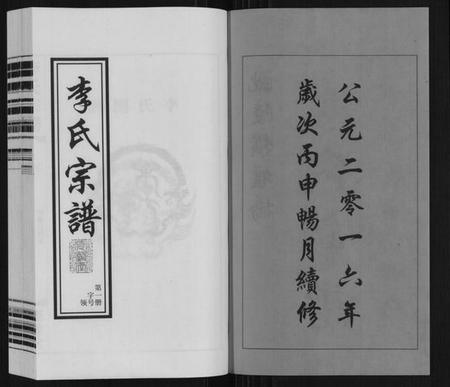 李氏宗譜
第一册
字号
领
公元二零一六年
歲次丙申暢月續修